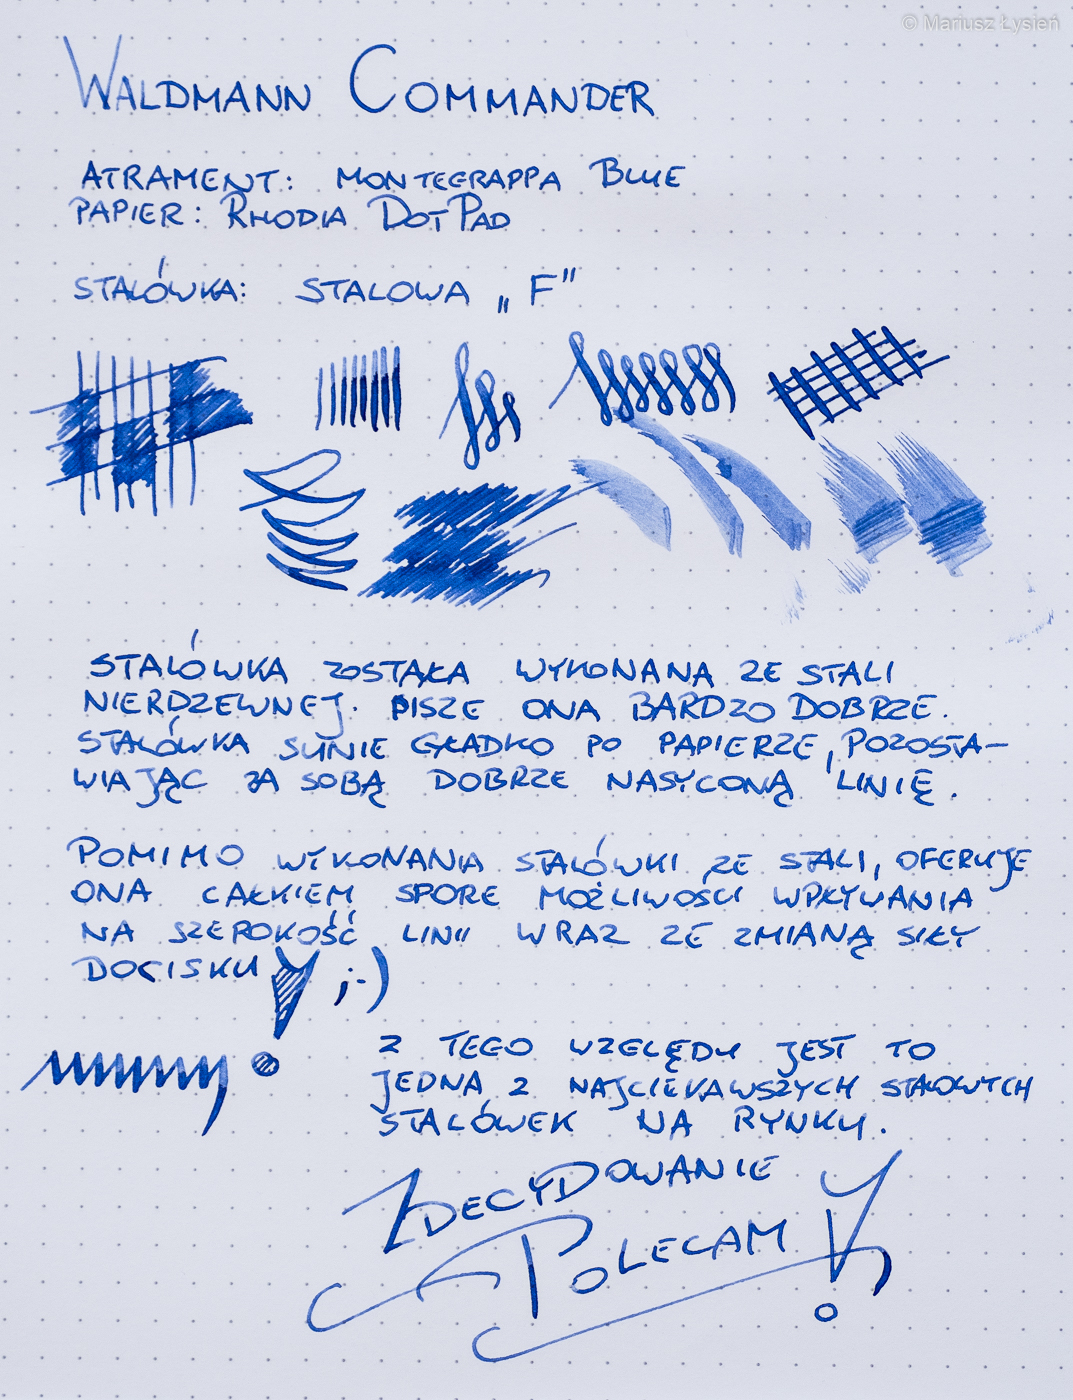 © Mariusz Łysień
WALDMANN COMMANDER
ATRAMENT: MONTEGRAPPA BLUE
PAPIER: RHODIA DOTPAD
STALÓWKA: STALOWA „F”
STALÓWKA ZOSTAŁA WYKONANA ZE STALI
NIERDZEWNEJ. PISZE ONA BARDZO DOBRZE.
STALÓWKA SUNIE GŁADKO PO PAPIERZE, POZOSTA-
WIAJĄC ZA SOBĄ DOBRZE NASYCONĄ LINIĘ.
POMIMO WYKONANIA STALÓWKI ZE STALI, OFERUJE
ONA CAŁKIEM SPORE MOŻLIWOŚCI WPŁYWANIA
NA SZEROKOŚĆ LINII WRAZ ZE ZMIANĄ SIŁY
DOCISKU ;-)
Z TEGO WZGLĘDU JEST TO
JEDNA Z NAJCIEKAWSZYCH STALOWYCH
STALÓWEK NA RYNKU.
ZDECYDOWANIE
POLECAM!